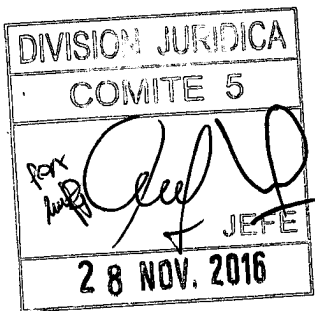 DIVISION JURIDICA
COMITE 5
por
JEFE
28 NOV. 2016